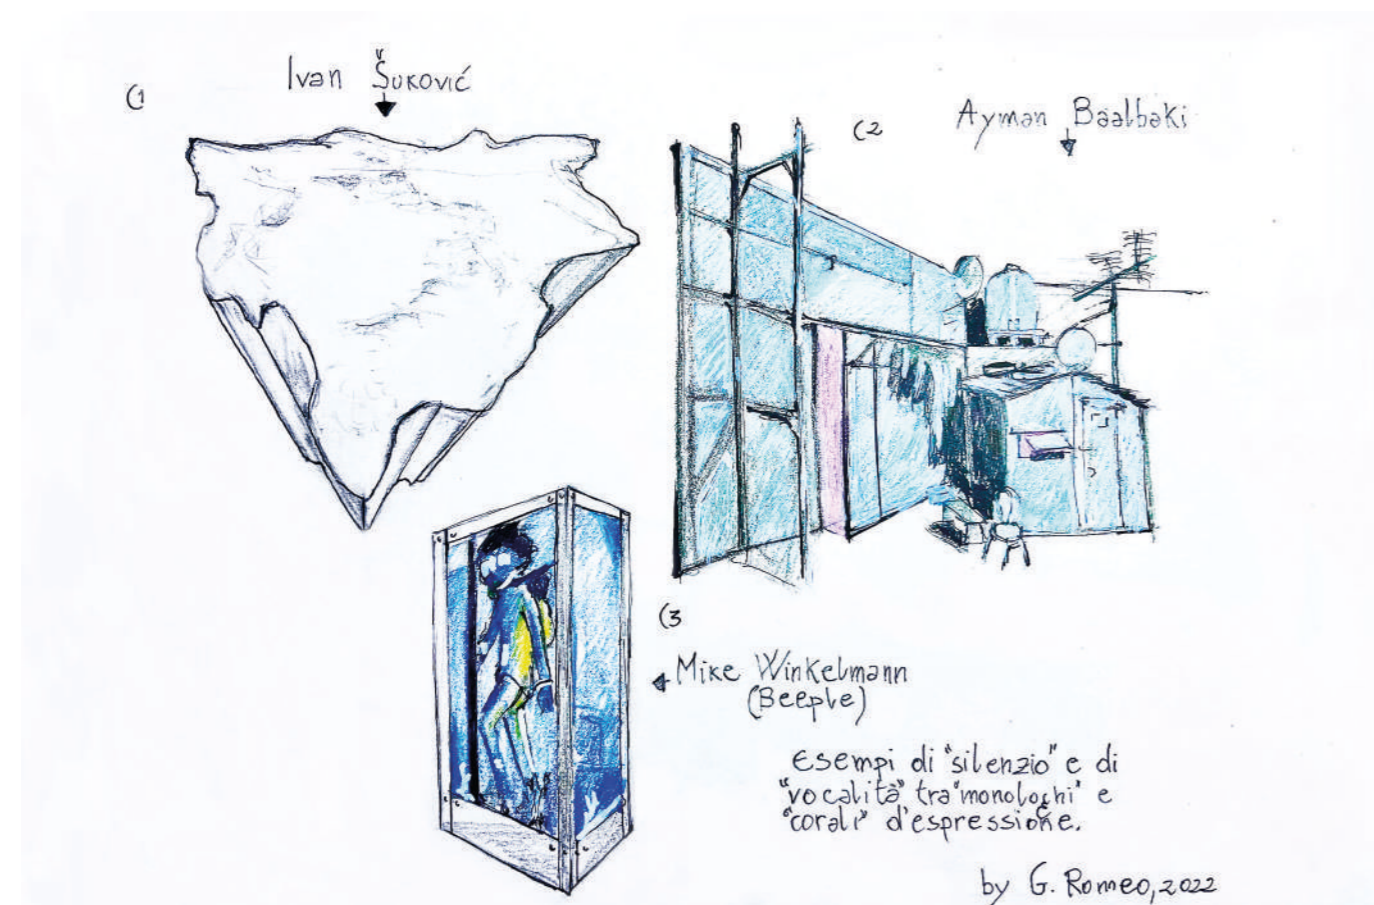 C1
Ivan Šuković
C2
Ayman Baalbaki
C3
Mike Winkelmann
(Beeple)
esempi di "silenzio" e di
"vocalità" tra "monologhi" e
"corali" d'espressione.
by G. Romeo, 2022